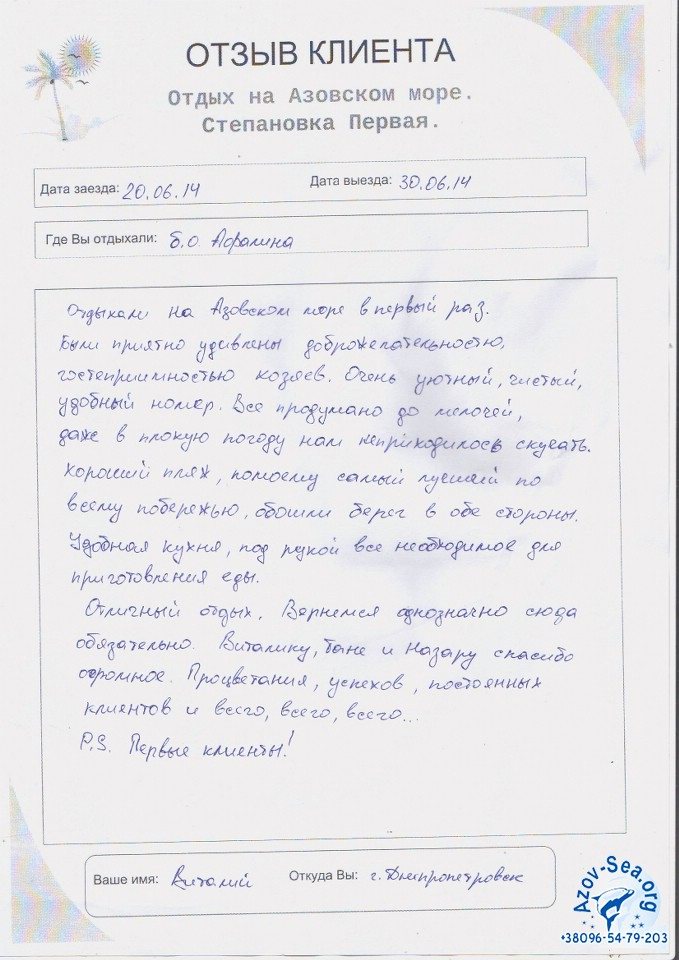 ОТЗЫВ КЛИЕНТА
Отдых на Азовском море.
Степановка Первая.
Дата заезда: 20.06.14 Дата выезда: 30.06.14
Где Вы отдыхали: б.о. Афалина
Отдыхали на Азовском море в первый раз.
Были приятно удивлены доброжелательностью,
гостеприимностью хозяев. Очень уютный, чистый,
удобный номер. Все продумано до мелочей,
даже в плохую погоду нам неприходилось скучать.
Хороший пляж, помоему самый лучший по
всему побережью, обошли берег в обе стороны.
Удобная кухня, под рукой все необходимое для
приготовления еды.
Отличный отдых. Вернемся однозначно сюда
обязательно. Виталику, Тане и Назару спасибо
огромное. Процветания, успехов, постоянных
клиентов и всего, всего, всего...
P.S. Первые клиенты!
Ваше имя: Виталий Откуда Вы: г. Днипропетровск
Azov-Sea.org
+38096-54-79-203